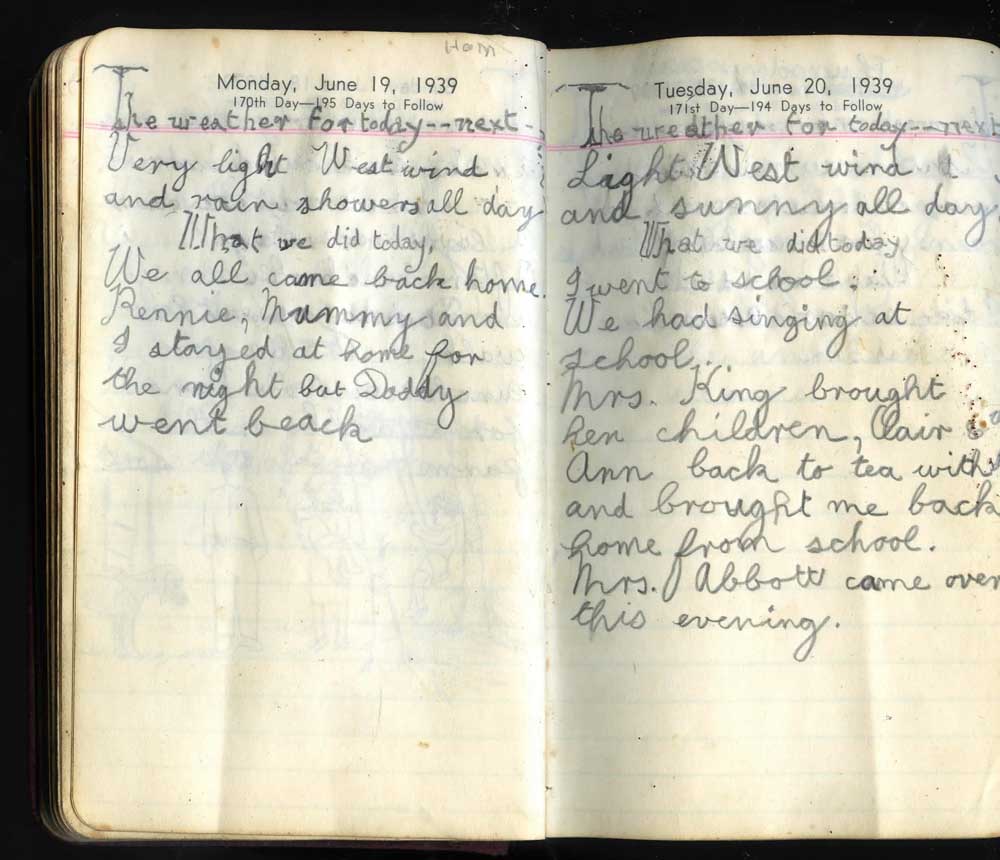 Ham
Monday, June 19, 1939
170th Day—195 Days to Follow
The weather for today--next-
Very light West wind
and rain showers all day
What we did today.
We all came back home.
Rennie, Mummy and
I stayed at home for
the night but Daddy
went beack
Tuesday, June 20, 1939
171st Day—194 Days to Follow
The weather for today--next
Light West wind
and sunny all day
What we did today
I went to school.
We had singing at
school.
Mrs. King brought
her children, Clair &
Ann back to tea with
and brought me back
home from school.
Mrs. Abbott came over
this evening.